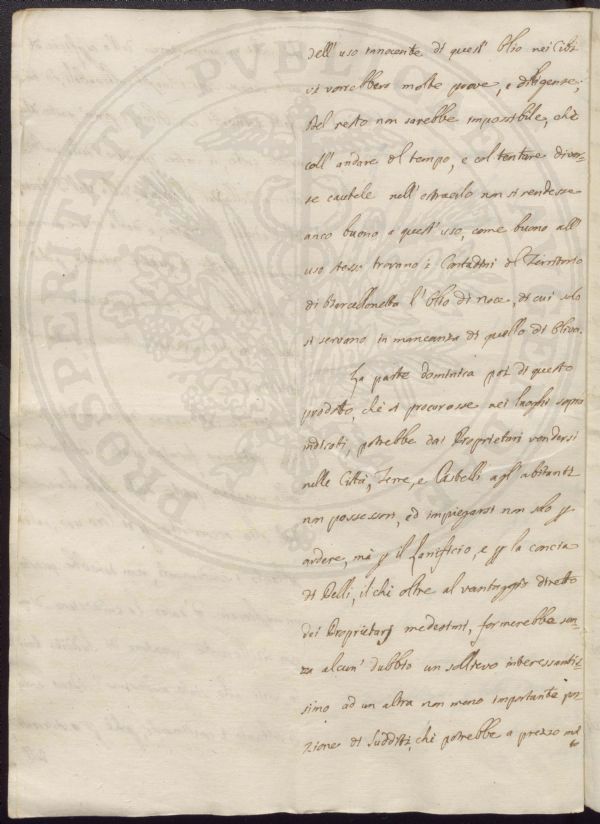 dell' uso innocente di quest' Olio nei Cibi
vi vorrebbero molte prove, e diligenze;
Del resto non sarebbe impossibile, che
coll' andare del tempo, e col tentare diver=
se cautele nell' estraerlo non si rendesse
anco buono a quest' uso, come buono all'
uso stesso trovano i Contadini del Territorio
di Barcellonetta l' Olio di noce, di cui solo
si servano in mancanza di quello di Oliva.
La parte dominica poi di questo
prodotto, che si procurasse nei luoghi sopra
indicati, potrebbe dai Proprietarj vendersi
nelle Città, Terre, e Castelli agl' abitanti
non possessori, ed impiegarsi non solo p
ardere, mà p il Lanificio, e p la concia
di Pelli, il chè oltre al vantaggio diretto
dei Proprietarj medesimi, formerebbe sen=
za alcun' dubbio un sollievo interessantis=
simo ad un altra non meno importante por=
zione di Sudditi, che potrebbe a prezzo mi=
PROSPERITATI PVBLICAE